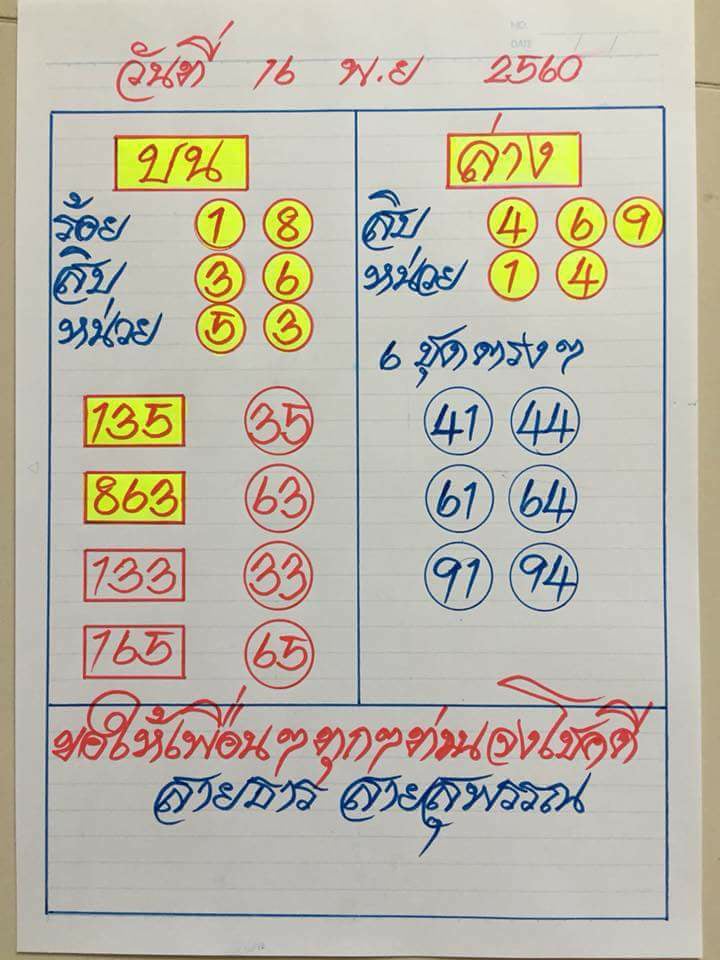 NO.
DATE
วันที่ 16 พ.ย 2560
บน
ร้อย 1 8
สิบ 3 6
หน่วย 5 3
135 35
863 63
133 33
165 65
ล่าง
สิบ 4 6 9
หน่วย 1 4
6 ชุดตรงๆ
41 44
61 64
91 94
ขอให้เพื่อนๆทุกๆท่านจงโชคดี
สายธาร สายสุพรรณ